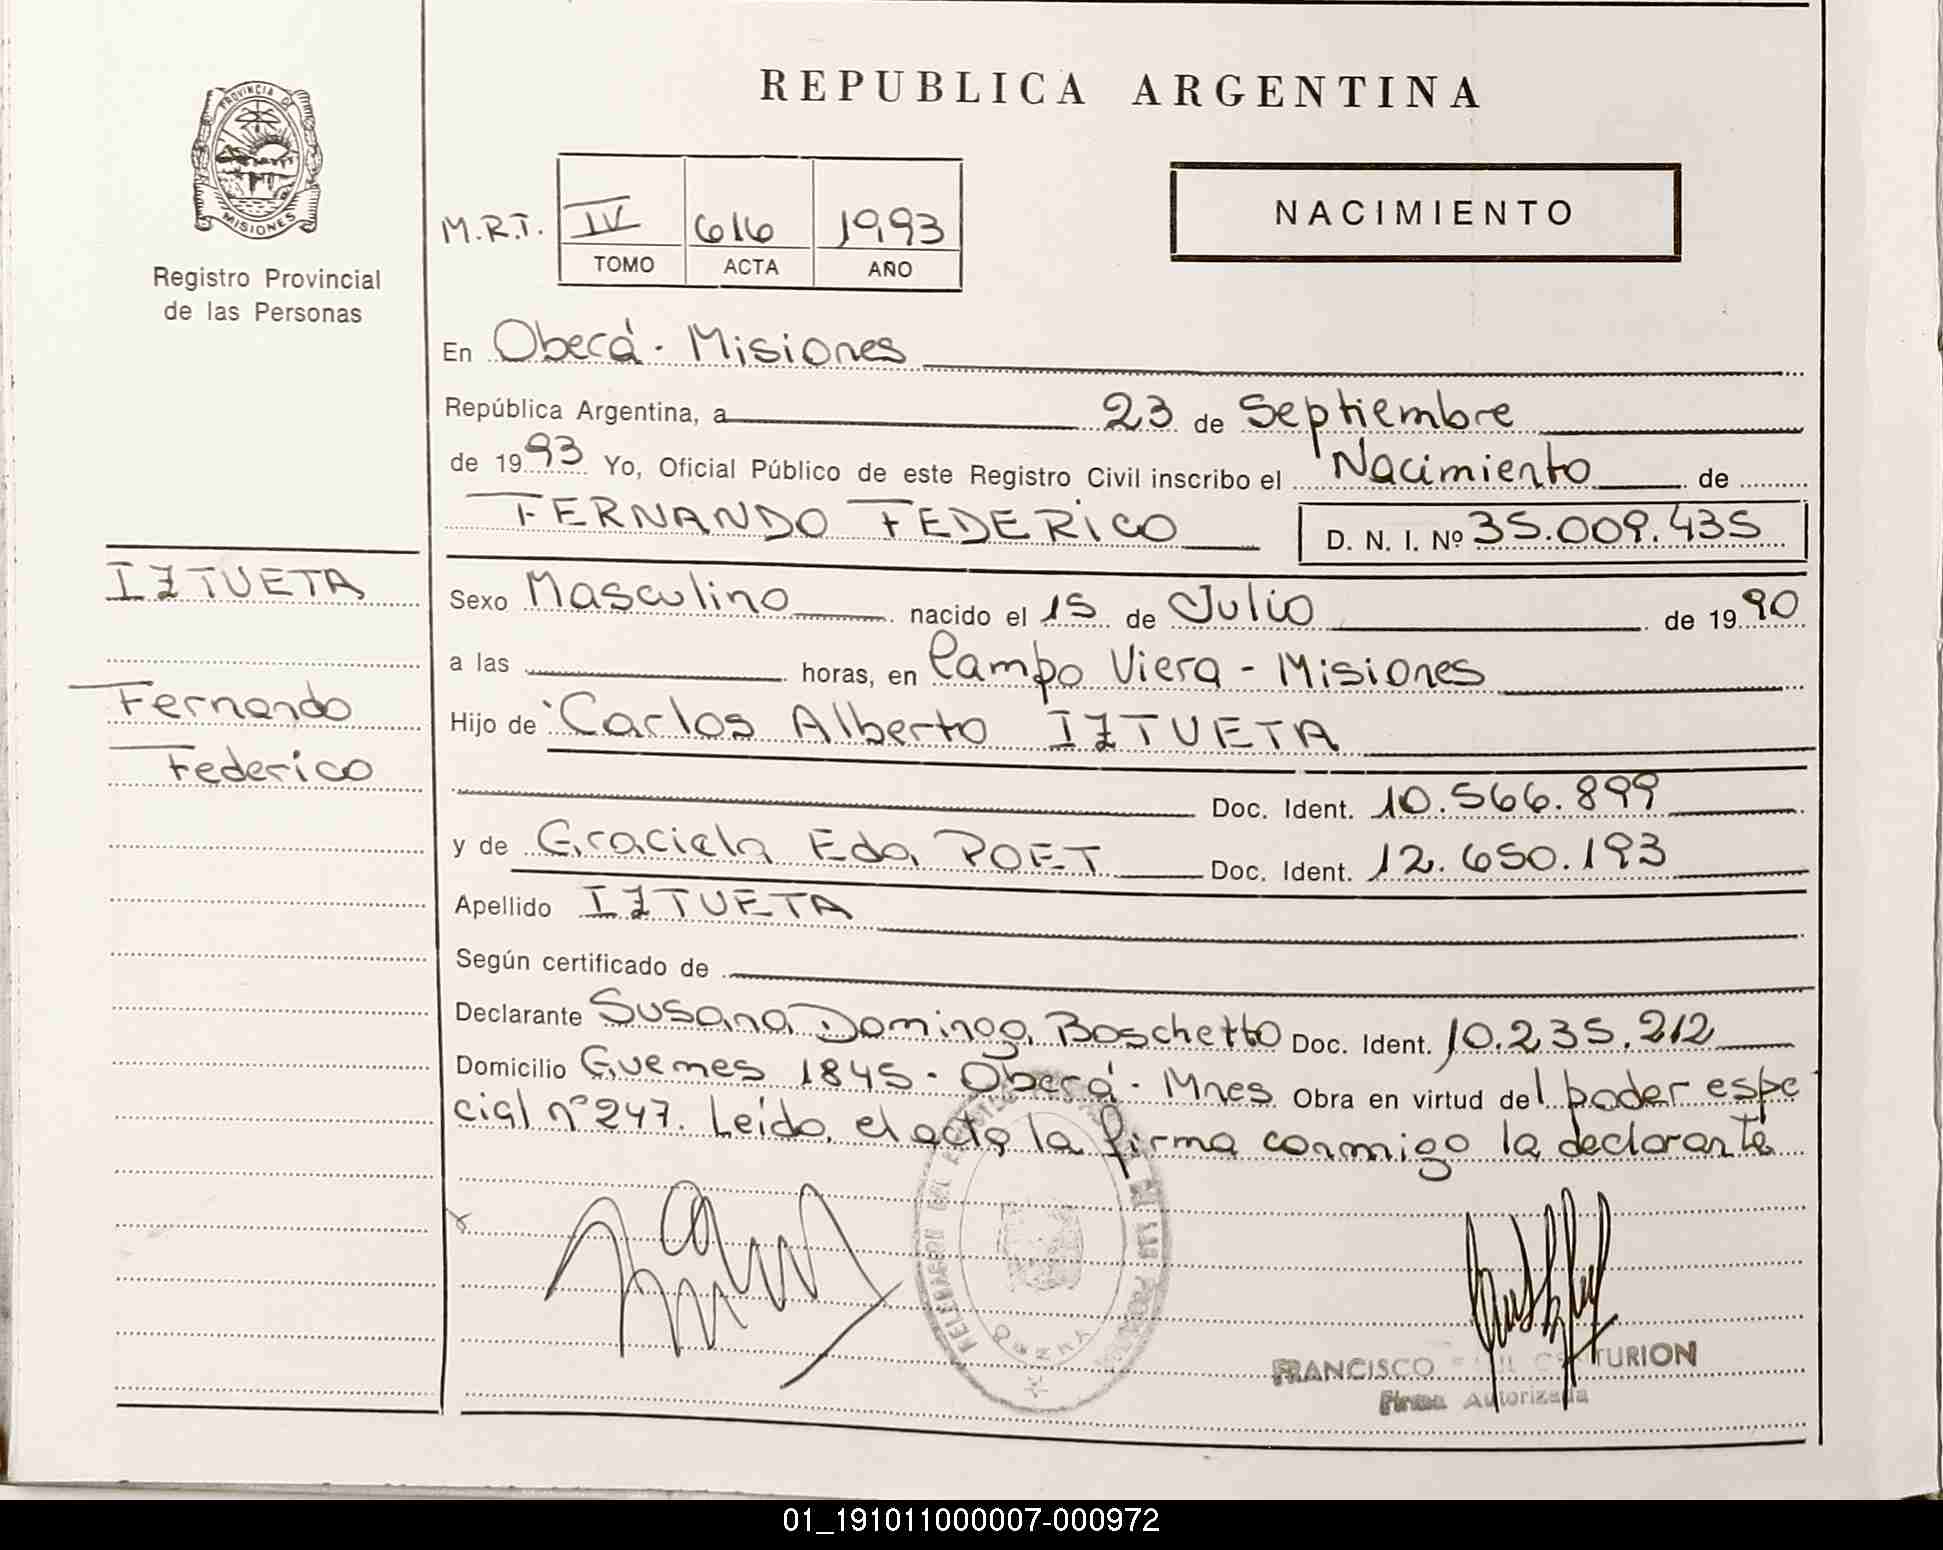 REPUBLICA ARGENTINA
PROVINCIA DE
MISIONES
Registro Provincial
de las Personas
M.R.T. IV 616 1993
TOMO ACTA AÑO
NACIMIENTO
En Oberá - Misiones
República Argentina, a 23 de Septiembre
de 1993 Yo, Oficial Público de este Registro Civil inscribo el Nacimiento de
FERNANDO FEDERICO D. N. I. Nº 35.009.435
IZTUETA
Fernando
Federico
Sexo Masculino nacido el 15 de Julio de 1990
a las horas, en Campo Viera - Misiones
Hijo de Carlos Alberto IZTUETA
Doc. Ident. 10.566.899
y de Graciela Eda POET Doc. Ident. 12.650.193
Apellido IZTUETA
Según certificado de
Declarante Susana Dominga Boschetto Doc. Ident. 10.235.212
Domicilio Guemes 1845 - Oberá - Mnes Obra en virtud del poder espe
cial nº 247. Leido el acta la firma conmigo la declarante
FRANCISCO CENTURION
Firma Autorizada
01_191011000007-000972